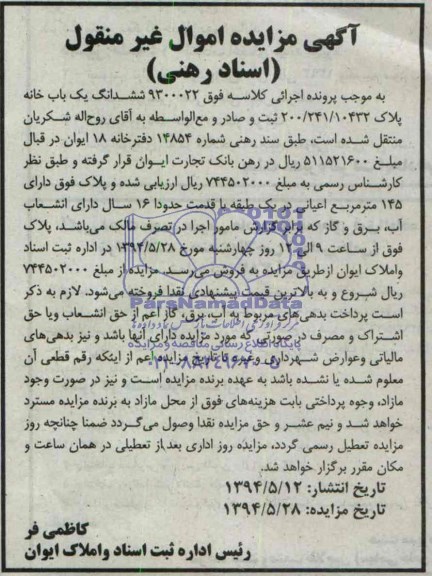 آگهی مزایده اموال غیر منقول
(اسناد رهنی)
به موجب پرونده اجرائی کلاسه فوق ۹۳۰۰۰۲۲ ششدانگ یک باب خانه
پلاک ۲۰۰/۲۴۱/۱۰۴۳۲ ثبت و صادر و مع‌الواسطه به آقای روح‌اله شکریان
منتقل شده است، طبق سند رهنی شماره ۱۴۸۵۴ دفترخانه ۱۸ ایوان در قبال
مبلغ ۵۱۱۵۲۱۶۰۰ ریال در رهن بانک تجارت ایوان قرار گرفته و طبق نظر
کارشناس رسمی به مبلغ ۷۴۴۵۰۲۰۰۰ ریال ارزیابی شده و پلاک فوق دارای
۱۴۵ مترمربع اعیانی در یک طبقه با قدمت حدودا ۱۶ سال دارای انشعاب
آب، برق و گاز که برابر گزارش مامور اجرا در تصرف مالک می‌باشد، پلاک
فوق از ساعت ۹ الی ۱۲ روز چهارشنبه مورخ ۱۳۹۴/۵/۲۸ در اداره ثبت اسناد
واملاک ایوان ازطریق مزایده به فروش می‌رسد. مزایده از مبلغ ۷۴۴۵۰۲۰۰۰
ریال شروع و به بالاترین قیمت پیشنهادی نقدا فروخته می‌شود. لازم به ذکر
است پرداخت بدهی‌های مربوط به آب، برق، گاز اعم از حق انشعاب ویا حق
اشتراک و مصرف در صورتی که مورد مزایده دارای آنها باشد و نیز بدهی‌های
مالیاتی وعوارض شهرداری وغیره تا تاریخ مزایده اعم از اینکه رقم قطعی آن
معلوم شده یا نشده باشد به عهده برنده مزایده است و نیز در صورت وجود
مازاد، وجوه پرداختی بابت هزینه‌های فوق از محل مازاد به برنده مزایده مسترد
خواهد شد و نیم عشر و حق مزایده نقدا وصول می‌گردد ضمنا چنانچه روز
مزایده تعطیل رسمی گردد، مزایده روز اداری بعد از تعطیلی در همان ساعت و
مکان مقرر برگزار خواهد شد.
تاریخ انتشار: ۱۳۹۴/۵/۱۲
تاریخ مزایده: ۱۳۹۴/۵/۲۸
کاظمی فر
رئیس اداره ثبت اسناد واملاک ایوان
ParsNamadData
پایگاه اطلاع رسانی مناقصه و مزایده